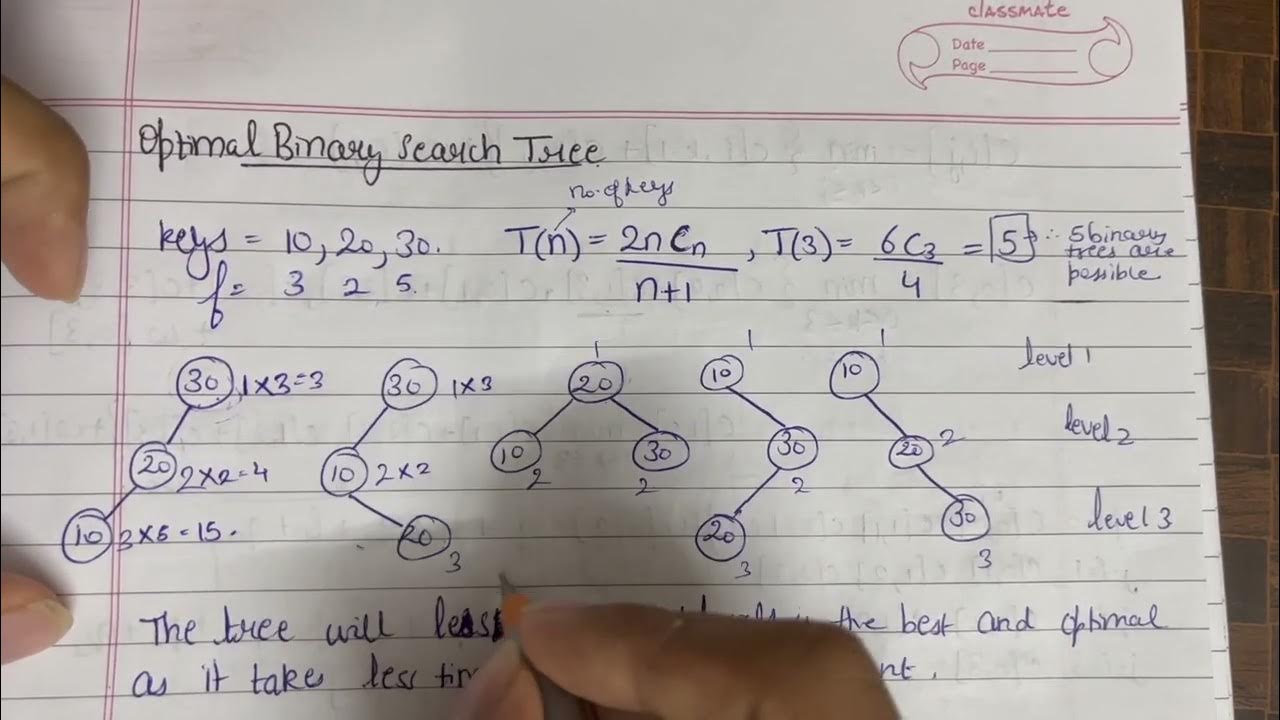 classmate
Date
Page
Optimal Binary Search Tree
no. of keys
keys = 10, 20, 30. T(n) = 2nCn / n+1 , T(3) = 6C3 / 4 = 5 ∴ 5 binary trees are possible
f = 3 2 5.
30 1×3=3 30 1×3 1 20 10 1 10 1 level 1
20 2×2=4 10 2×2 10 2 30 2 30 2 20 2 level 2
10 3×5=15. 20 3 20 3 30 3 level 3
The tree will less the best and optimal
as it takes less